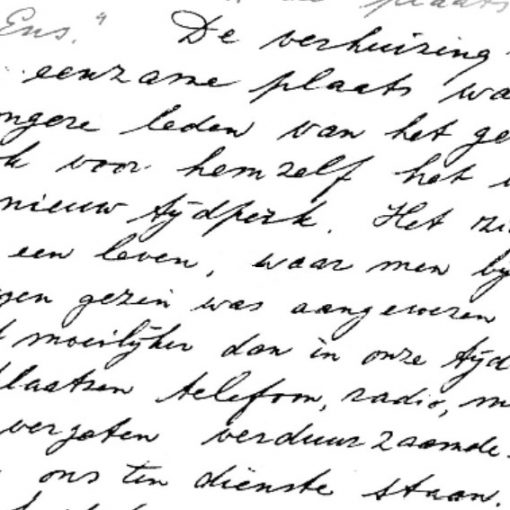 plaats
Ens." De verhuizing
eenzame plaats wa
ongere leden van het ge
ok voor hemzelf het
nieuw tijdperk. Het zi
een leven, waar men bij
gen gezin was aangewezen
moeilijker dan in onze tijd
plaatsen telefoon, radio, m
vergeten verduurzaamde
ons ten dienste staan.